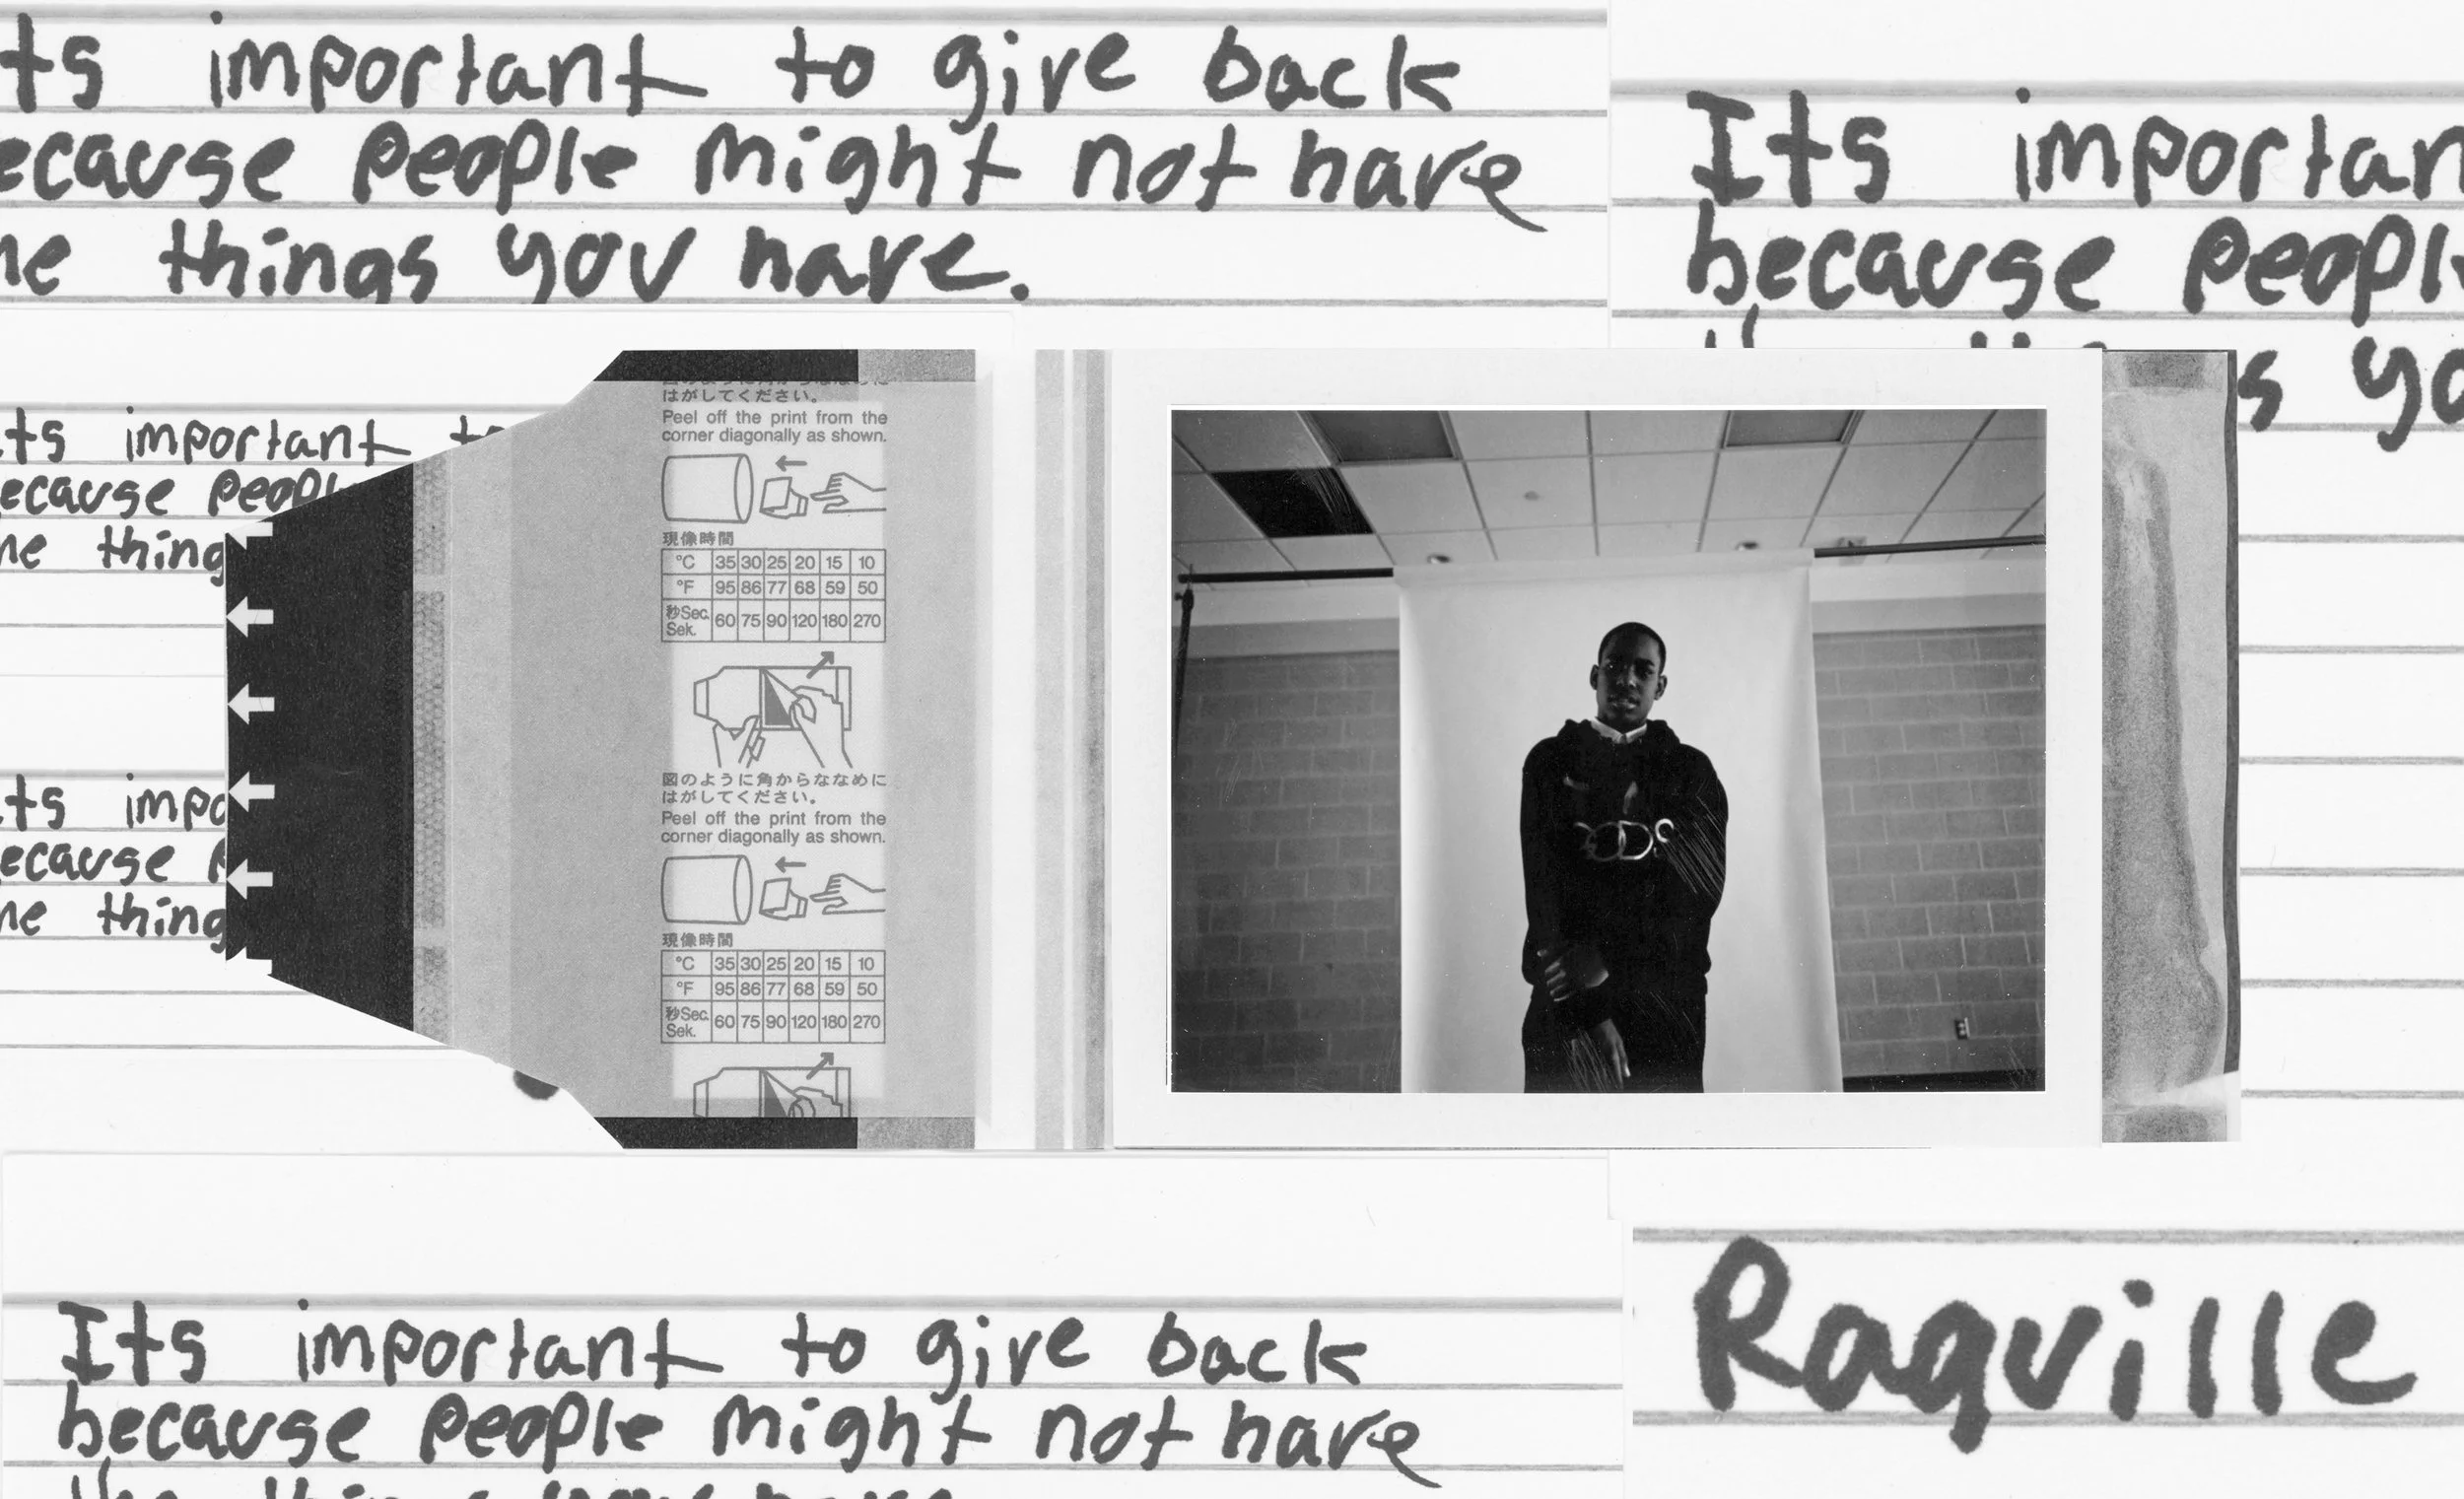 ts important to give back
ecause people might not have
he things you have.
Its importan
because peopl
s yo
ts important to
ecause peopl
he thing
ts impo
ecause p
he thing
はがしてください。
Peel off the print from the
corner diagonally as shown.
現像時間
°C 35 30 25 20 15 10
°F 95 86 77 68 59 50
秒Sec. Sek. 60 75 90 120 180 270
図のように角からななめに
はがしてください。
Peel off the print from the
corner diagonally as shown.
現像時間
°C 35 30 25 20 15 10
°F 95 86 77 68 59 50
秒Sec. Sek. 60 75 90 120 180 270
Its important to give back
because people might not have
Raqville